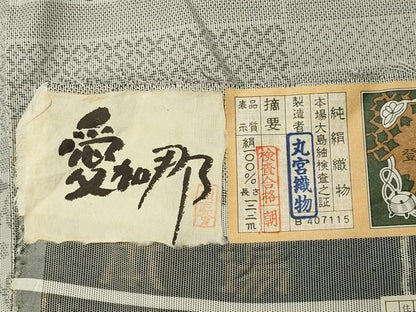 愛加那
純絹織物
本場大島紬検査之証
製造者
丸宮織物
B 407115
摘要
検査合格
朝
品質表示
絹一〇〇%
長さ一二m
登